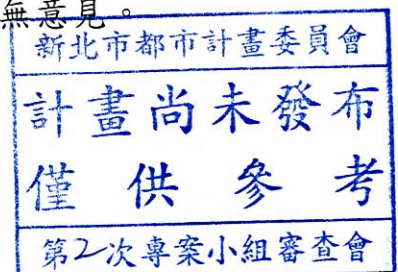 無意見。
新北市都市計畫委員會
計畫尚未發布
僅供參考
第2次專案小組審查會